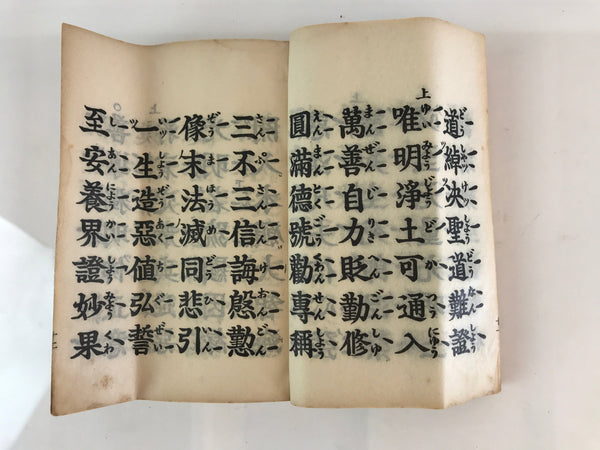 道綽决聖道難證
上
唯明淨土可通入
萬善自力貶勤修
圓滿德號勸專稱
三不三信誨慇懃
像末法滅同悲引
一生造惡値弘誓
至安養界證妙果